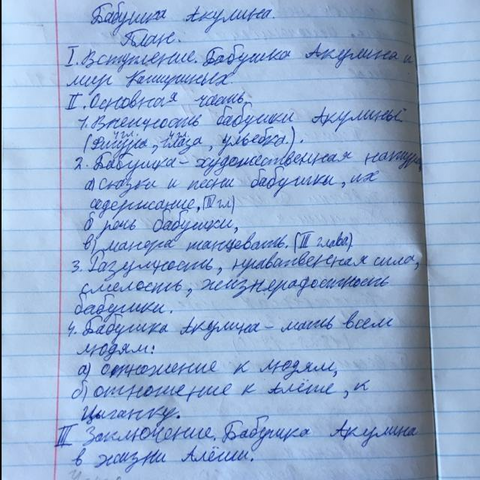 Бабушка Акулина.
План.
I. Вступление. Бабушка Акулина и
мир Кашириных
II. Основная часть.
1. Внешность бабушки Акулины
(Фигура, глаза, улыбка).
2. Бабушка – художественная натура
а) сказки и песни бабушки, их
содержание, (IV гл)
б) речь бабушки,
в) манера танцевать. (III глава)
3. Разумность, нравственная сила,
смелость, жизнерадостность
бабушки.
4. Бабушка Акулина – мать всем
людям:
а) отношение к людям,
б) отношение к Алёше, к
Цыганку.
III Заключение. Бабушка Акулина
в жизни Алёши.